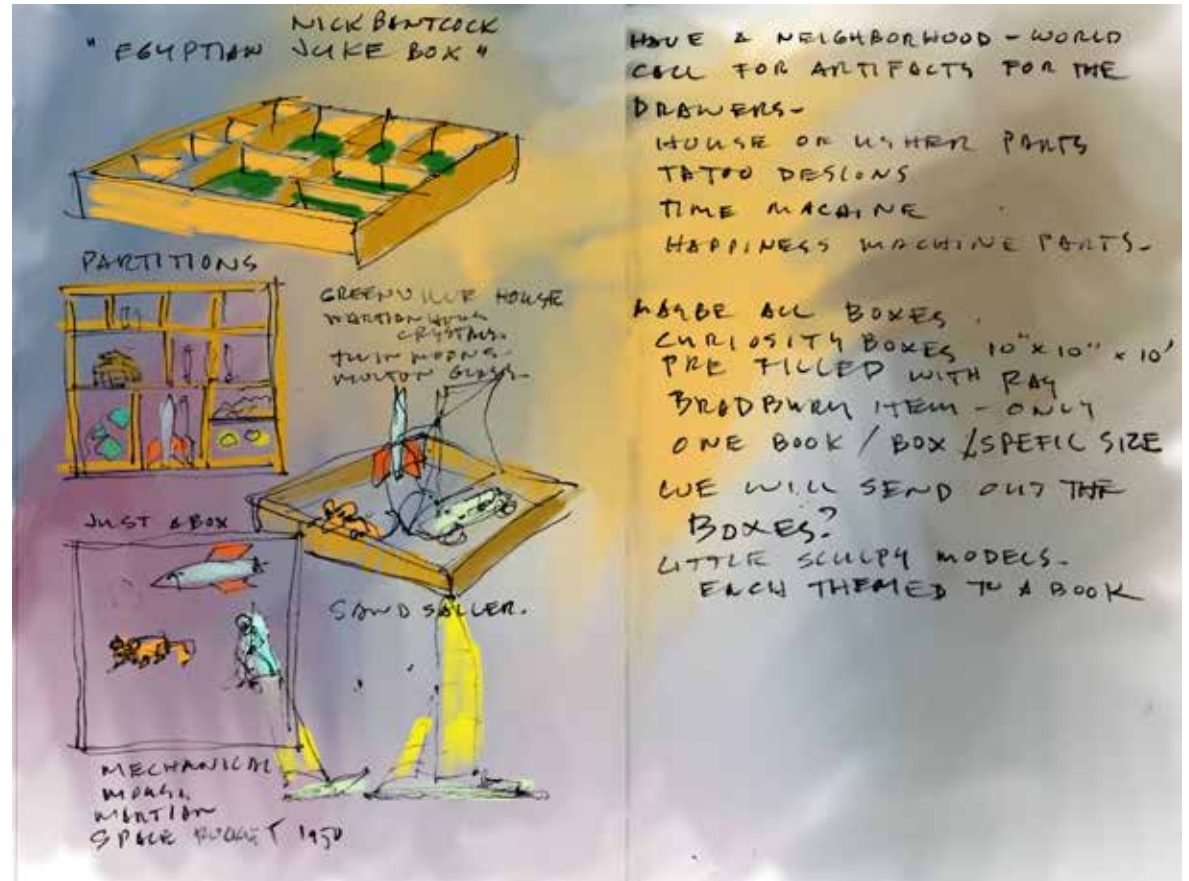 NICK BANTCOCK
"EGYPTIAN JUKE BOX"
PARTITIONS
GREENVILLE HOUSE
MARTIAN
CRYSTALS.
TWIN MOONS.
MOLTON GLASS.
JUST A BOX
SAND SAILER.
MECHANICAL
MOUSE
MARTIAN
SPACE ROCKET 1950
HAVE A NEIGHBORHOOD-WORLD
CALL FOR ARTIFACTS FOR THE
DRAWERS-
HOUSE OF USHER PARTS
TATOO DESIGNS
TIME MACHINE
HAPPINESS MACHINE PARTS-
MAYBE ALL BOXES.
CURIOSITY BOXES 10"x10"x10'
PRE FILLED WITH RAY
BRADBURY ITEM-ONLY
ONE BOOK/BOX/SPEFIC SIZE
WE WILL SEND OUT THE
BOXES?
LITTLE SCULPY MODELS.
EACH THEMED TO A BOOK